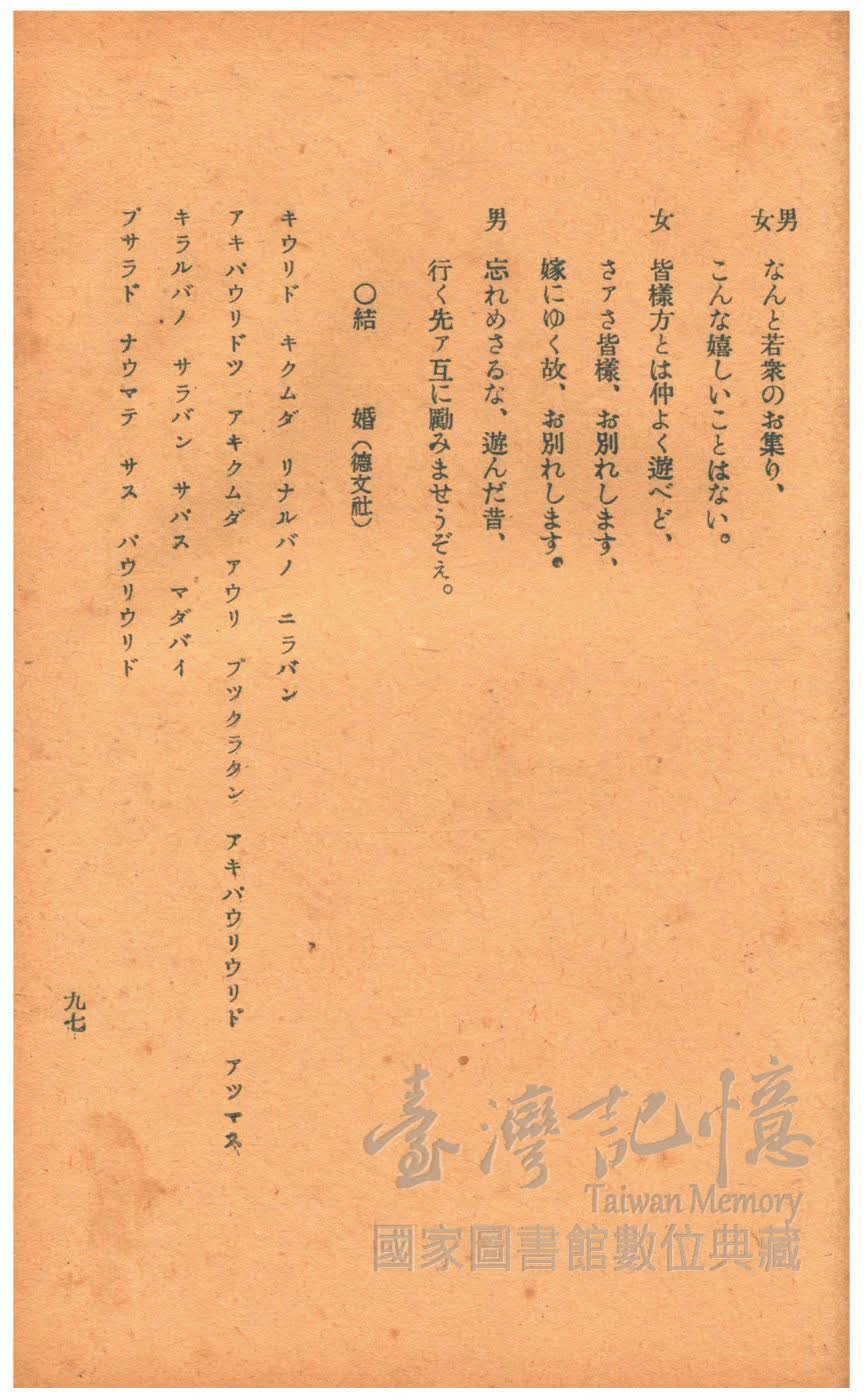 男女 なんと若衆のお集り、
こんな嬉しいことはない。
女 皆樣方とは仲よく遊べど、
さァさ皆樣、お別れします、
嫁にゆく故、お別れします。
男 忘れめさるな、遊んだ昔、
行く先ァ互に勵みませうぞぇ。
〇結 婚(德文社)
キウリド キクムダ リナルバノ ニラバン
アキパウリドツ アキクムダ アウリ プツクラタン アキパウリウリド アツマス
キラルバノ サラバン サパス マダバイ
プサラド ナウマテ サス パウリウリド
九七
臺灣記憶
Taiwan Memory
國家圖書館數位典藏